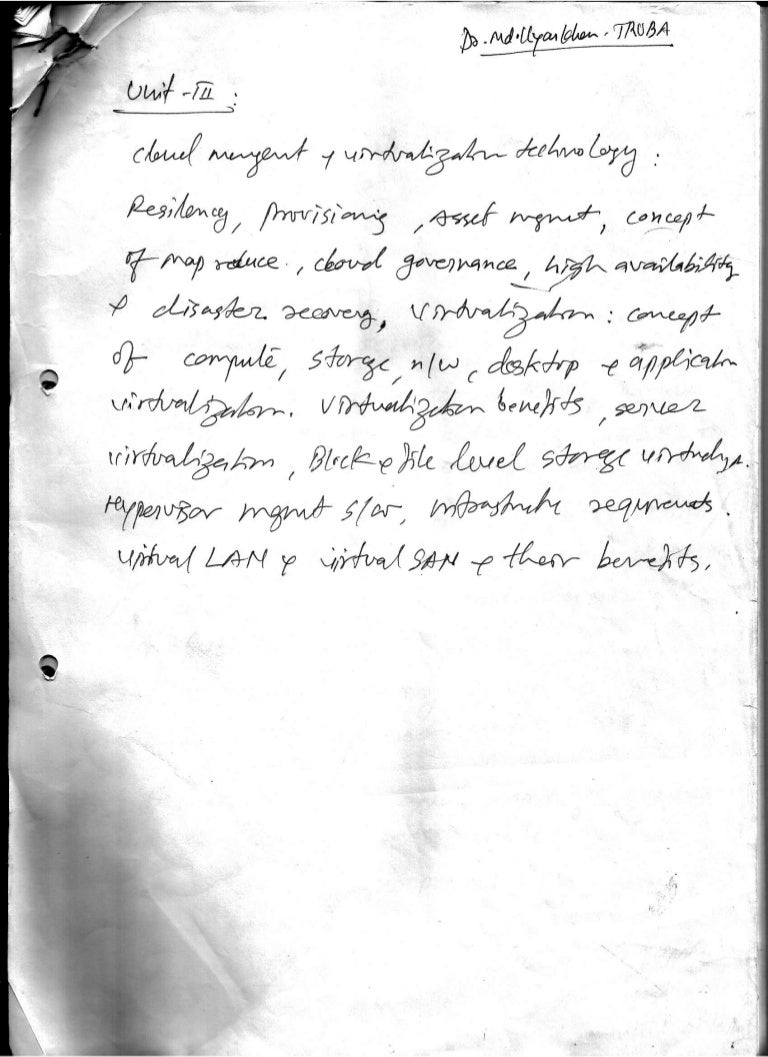 Dr. Md. Ilyas Khan. TRUBA
Unit - III :
Cloud mangent & virtualization technology :
Resilency, provisioning, Asset mgmut, concept
of map reduce., cloud governance, high availability
& disaster recovery, virtualization : concept
of compute, storage, n/w, desktop & application
virtualization. Virtualization benefits, server
virtualization, Block & file level storage
Hypervisor mgmut s/w, infrastructure requirements.
virtual LAN & virtual SAN & their benefits.